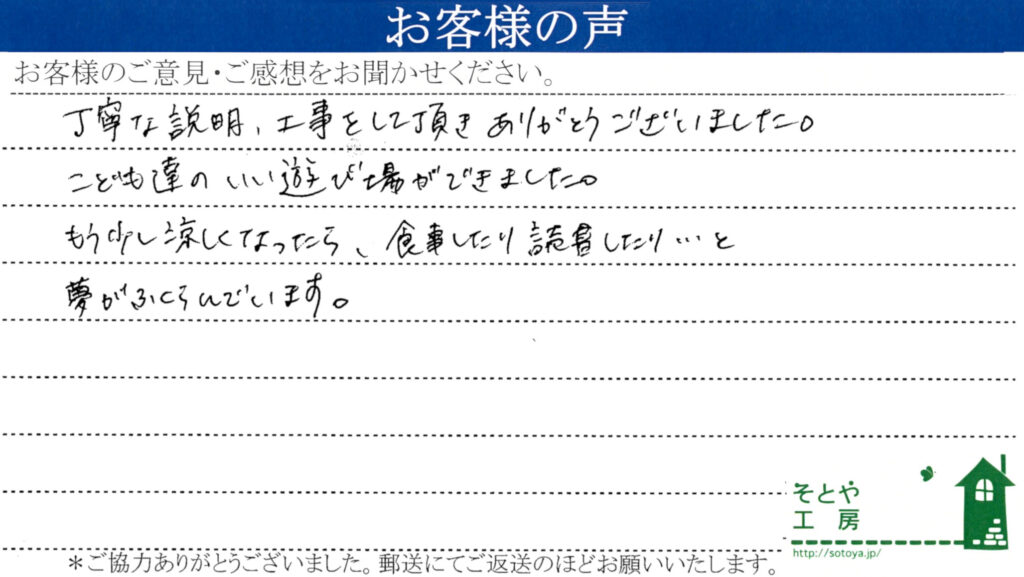 お客様の声
お客様のご意見・ご感想をお聞かせください。
丁寧な説明、工事をして頂きありがとうございました。
こども達のいい遊び場ができました。
もう少し涼しくなったら、食事したり読書したり…と
夢がふくらんでいます。
そとや
工房
http://sotoya.jp/
＊ご協力ありがとうございました。郵送にてご返送のほどお願いいたします。